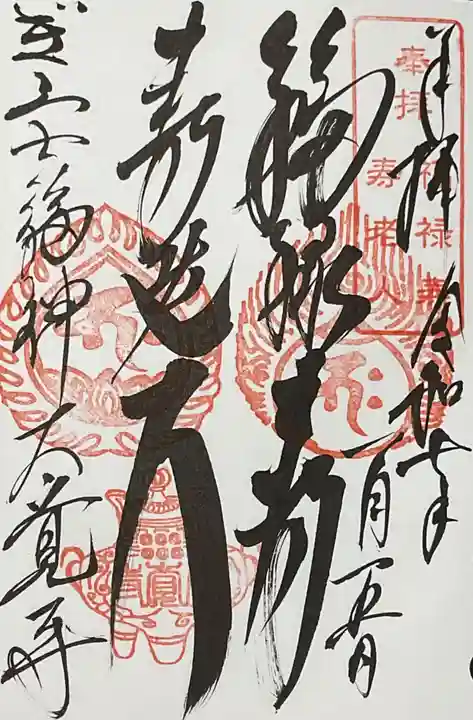 奉拝 令和七年
一月一五日
福禄寿
寿老人
七福神 大覚寺
奉拝 福禄寿
寿老人